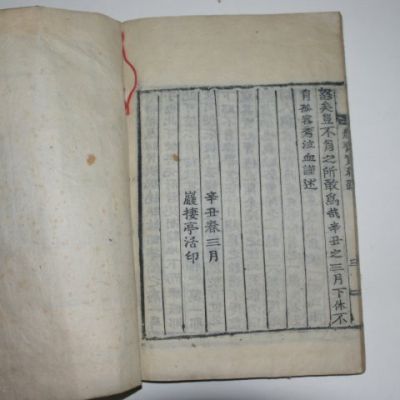 矣豈不肖之所敢爲哉辛丑之三月下休不
肖孤容秀泣血謹述
辛丑春三月
巖棲亭活印